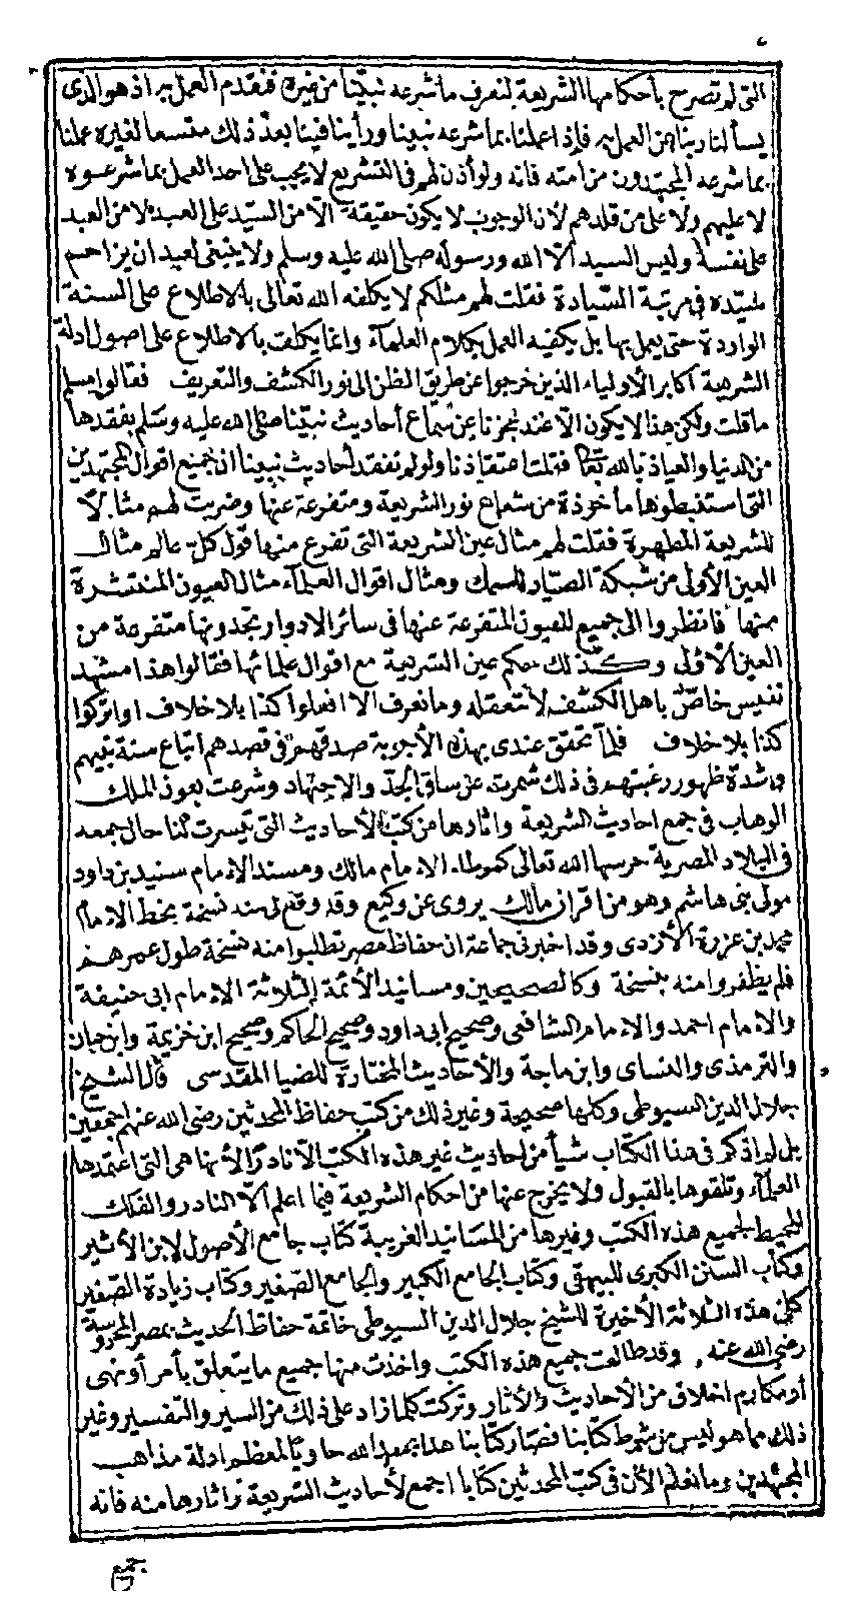 التى لم تصرح بأحكامها الشريعة لنعرف ما شرعه نبينا من غيره فنقدم العمل به اذ هو الذى
يسألنا ربنا عن العمل به فإذا عملنا بما شرعه نبينا ورأينا فينا بعد ذلك متسعا لغيره عملنا
بما شرعه المجتهدون من أمته فانه ولو أذن لهم فى التشريع لا يجب على احد العمل بما شرعوه
لا عليهم ولا على من قلدهم لأن الوجوب لا يكون حقيقة الا من السيد على العبد لا من العبد
على نفسه وليس السيد الا الله ورسوله صلى الله عليه وسلم ولا ينبغى لعبد ان يزاحم
سيده فى مرتبة السيادة فقلت لهم مثلكم لا يكلفه الله تعالى بالاطلاع على السنة
الواردة حتى يعمل بها بل يكفيه العمل بكلام العلمآء وانما يكلف بالاطلاع على اصول ادلة
الشريعة أكابر الأولياء الذين خرجوا عن طريق الظن الى نور الكشف والتعريف فقالوا مسلم
ما قلت ولكن هذا لا يكون الا عند عجزنا عن سماع أحاديث نبينا صلى الله عليه وسلم بفقدها
من الدنيا والعياذ بالله تعا فقلت اعتقاذنا ولو لم تفقد أحاديث نبينا ان جميع اقوال المجتهدين
التى استنبطوها مأخوذة من شعاع نور الشريعة ومتفرعة عنها وضربت لهم مثالا
للشريعة المطهرة فقلت لهم مثال عين الشريعة التى تفرع منها قول كل عالم مثال
العين الأولى من شبكة الصياد للسمك ومثال اقوال العلمآء مثال العيون المنتشرة
منها فانظروا الى جميع العيون المتفرعة عنها فى سائر الادوار تجدونها متفرعة من
العين الأولى وكذلك حكم عين الشريعة مع اقوال علمائها فقالوا هذا مشهد
نفيس خاص بأهل الكشف لا نتعقله وما نعرف الا افعلوا كذا بلا خلاف او اتركوا
كذا بلا خلاف فلما تحقق عندى بهذه الأجوبة صدقهم فى قصدهم اتباع سنة نبيهم
وشدة ظهور رغبتهم فى ذلك شمرت عن ساق الجد والاجتهاد وشرعت بعون الملك
الوهاب فى جمع احاديث الشريعة واثارها من كتب الأحاديث التى تيسرت لنا حال جمعه
فى البلاد المصرية حرسها الله تعالى كموطاء الامام مالك ومسند الامام سنيد بن داود
مولى بنى هاشم وهو من اقران مالك يروى عن وكيع وقد وقع لى منه نسخة بخط الامام
محمد بن عزرة الأزدى وقد اخبرنى جماعة ان حفاظ مصر تطلبوا منه نسخة طول عمرهم
فلم يظفروا منه بنسخة وكالصحيحين ومسانيد الأئمة الثلاثة الامام ابى حنيفة
والامام احمد والامام الشافعى وصحيح ابى داود وصحيح الحاكم وصحيح ابن خزيمة وابن حبان
والترمذى والنساى وابن ماجة والأحاديث المختارة للضيا المقدسى قال الشيخ
جلال الدين السيوطى وكلها صحيحة وغير ذلك من كتب حفاظ المحدثين رضى الله عنهم اجمعين
بل لم اذكر فى هذا الكتاب شيأ من احاديث غير هذه الكتب الا نادرا لأنها هى التى اعتمدها
العلمآء وتلقوها بالقبول ولا يخرج عنها من احكام الشريعة فيما اعلم الا النادر والفلك
المحيط لجميع هذه الكتب وغيرها من المسانيد الغريبة كتاب جامع الأصول لابن الأثير
وكتاب السنن الكبرى للبيهقى وكتاب الجامع الكبير والجامع الصغير وكتاب زيادة الصغير
كل هذه الثلاثة الأخيرة للشيخ جلال الدين السيوطى خاتمة حفاظ الحديث بمصر المحروسة
رضى الله عنه وقد طالعت جميع هذه الكتب واخذت منها جميع ما يتعلق بأمر أو نهى
أو مكارم اخلاق من الأحاديث والأثار وتركت كلما زاد على ذلك من السير والتفسير وغير
ذلك مما هو ليس من شرط كتابنا فصار كتابنا هذا بحمد الله حاويا لمعظم ادلة مذاهب
المجتهدين وما نعلم الأن فى كتب المحدثين كتابا اجمع لأحاديث الشريعة واثارها منه فانه
جمع